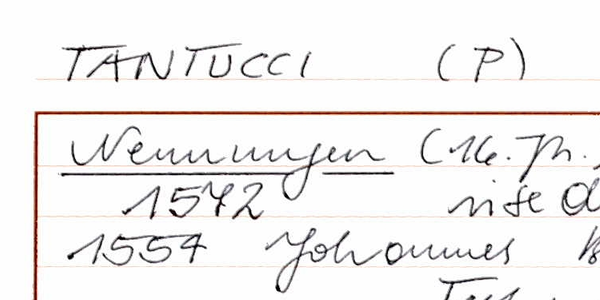 TANTUCCI (P)
Nenningen (16. Jh.)
1572
1557 Johannes